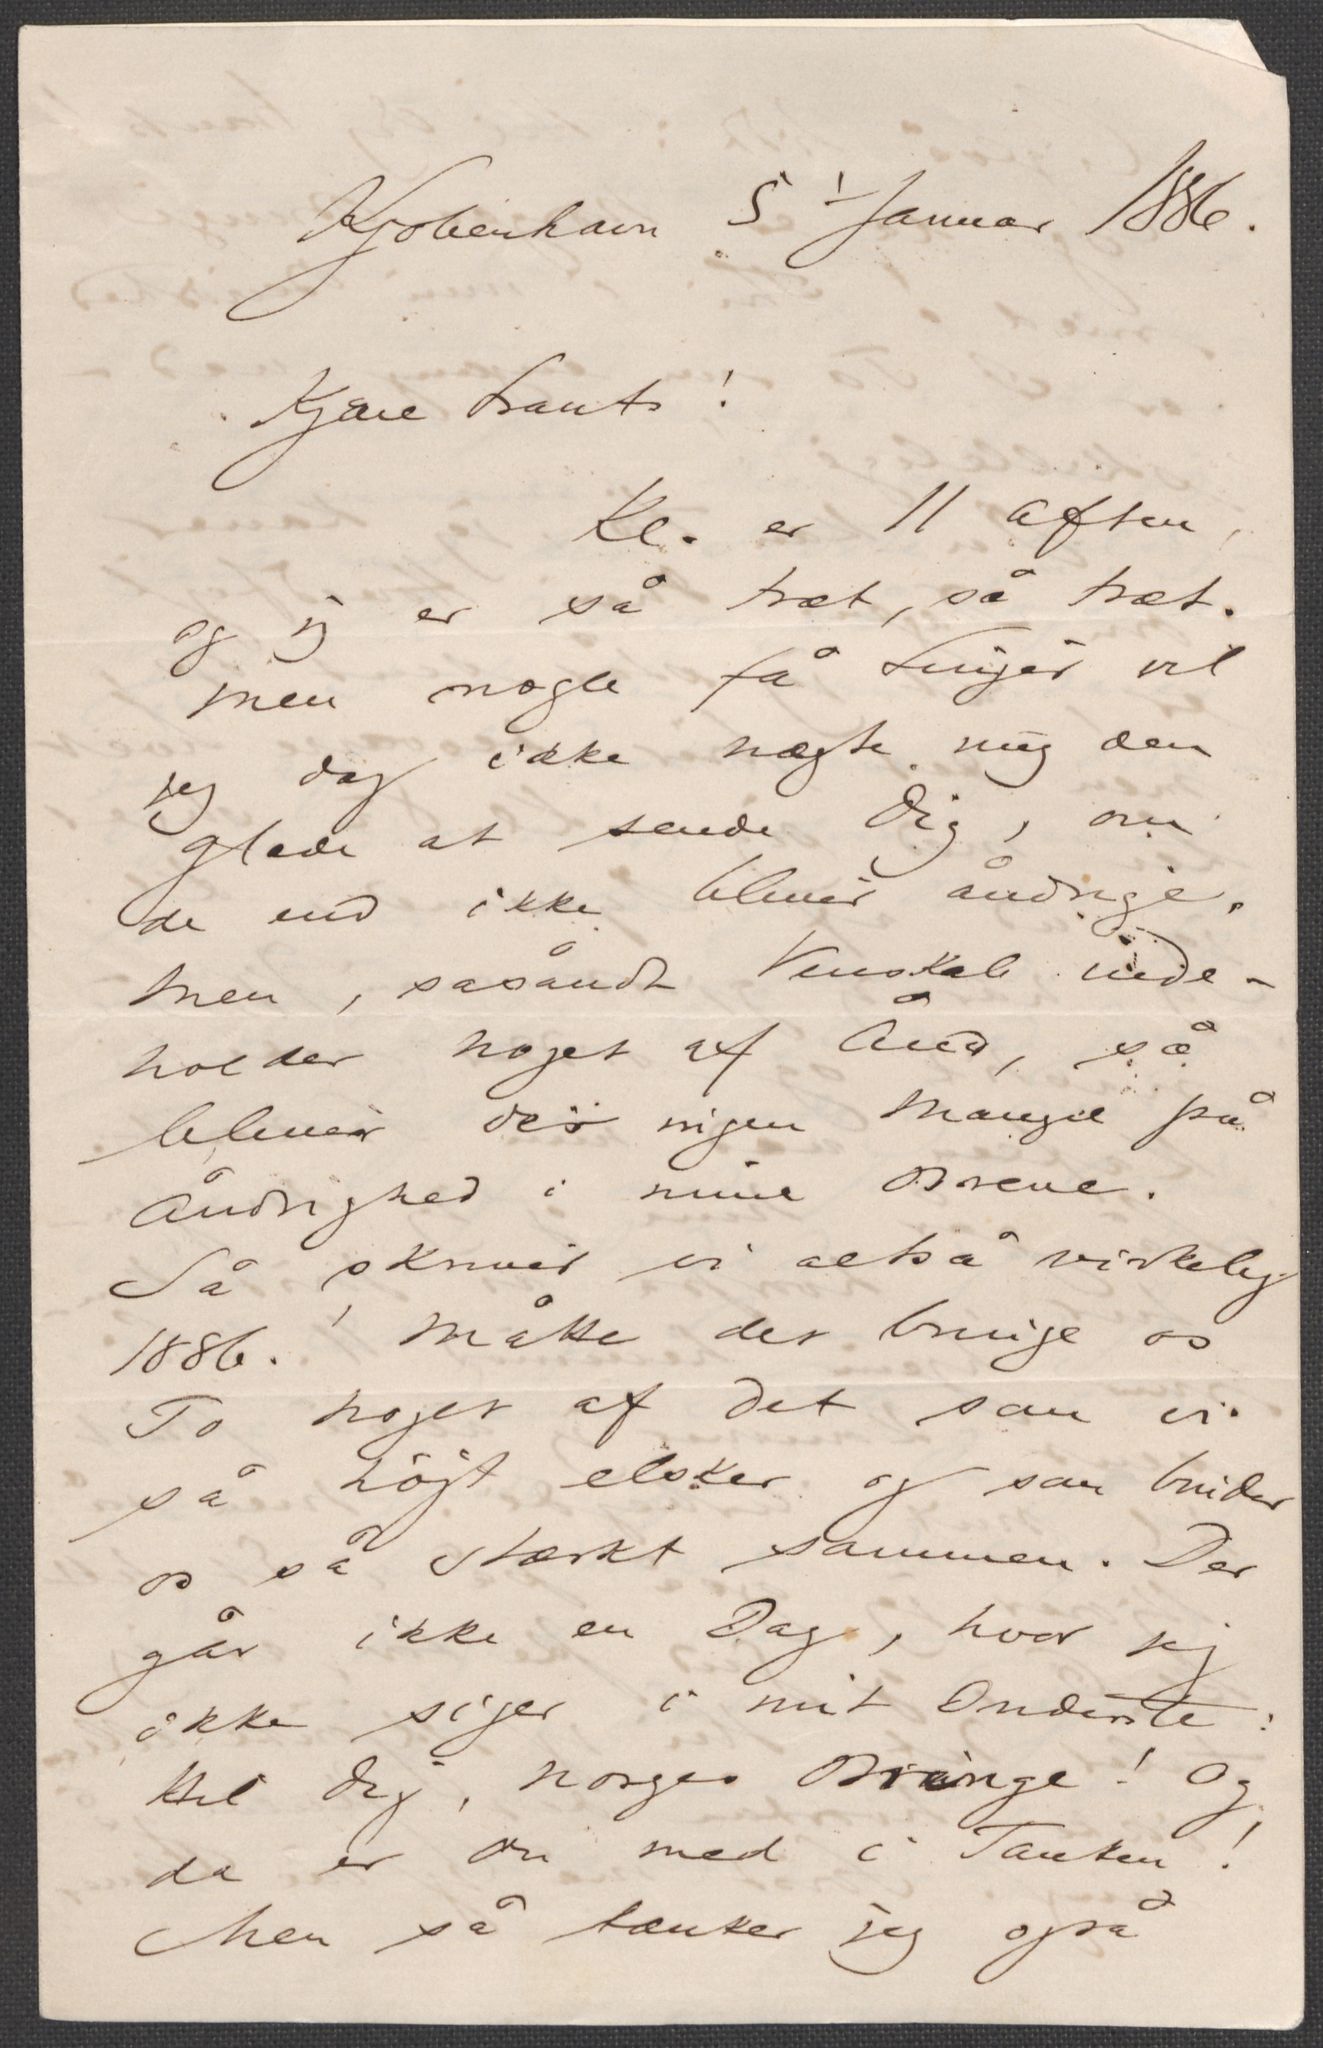 Kjøbenhavn 5 Januar 1886.
Kjære Frants!
Kl. er 11 Aften,
og jeg er så træt, så træt.
Men nogle få Linjer vil
jeg dog ikke nægte mig den
Glæde at sende Dig, om
de end ikke bliver åndrige.
Men, såsandt Venskab inde-
holder noget af Ånd, så
bliver der ingen Mangel på
Åndrighed i mine Breve.
Så skriver vi altså virkelig
1886! Måtte det bringe os
To noget af det som vi
så højt elsker og som binder
os så stærkt sammen. Der
går ikke en Dag, hvor jeg
ikke siger i mit Inderste:
Hil dig, Norges Bringe! Og
da er Du med i Tanken!
Men så tænker jeg også